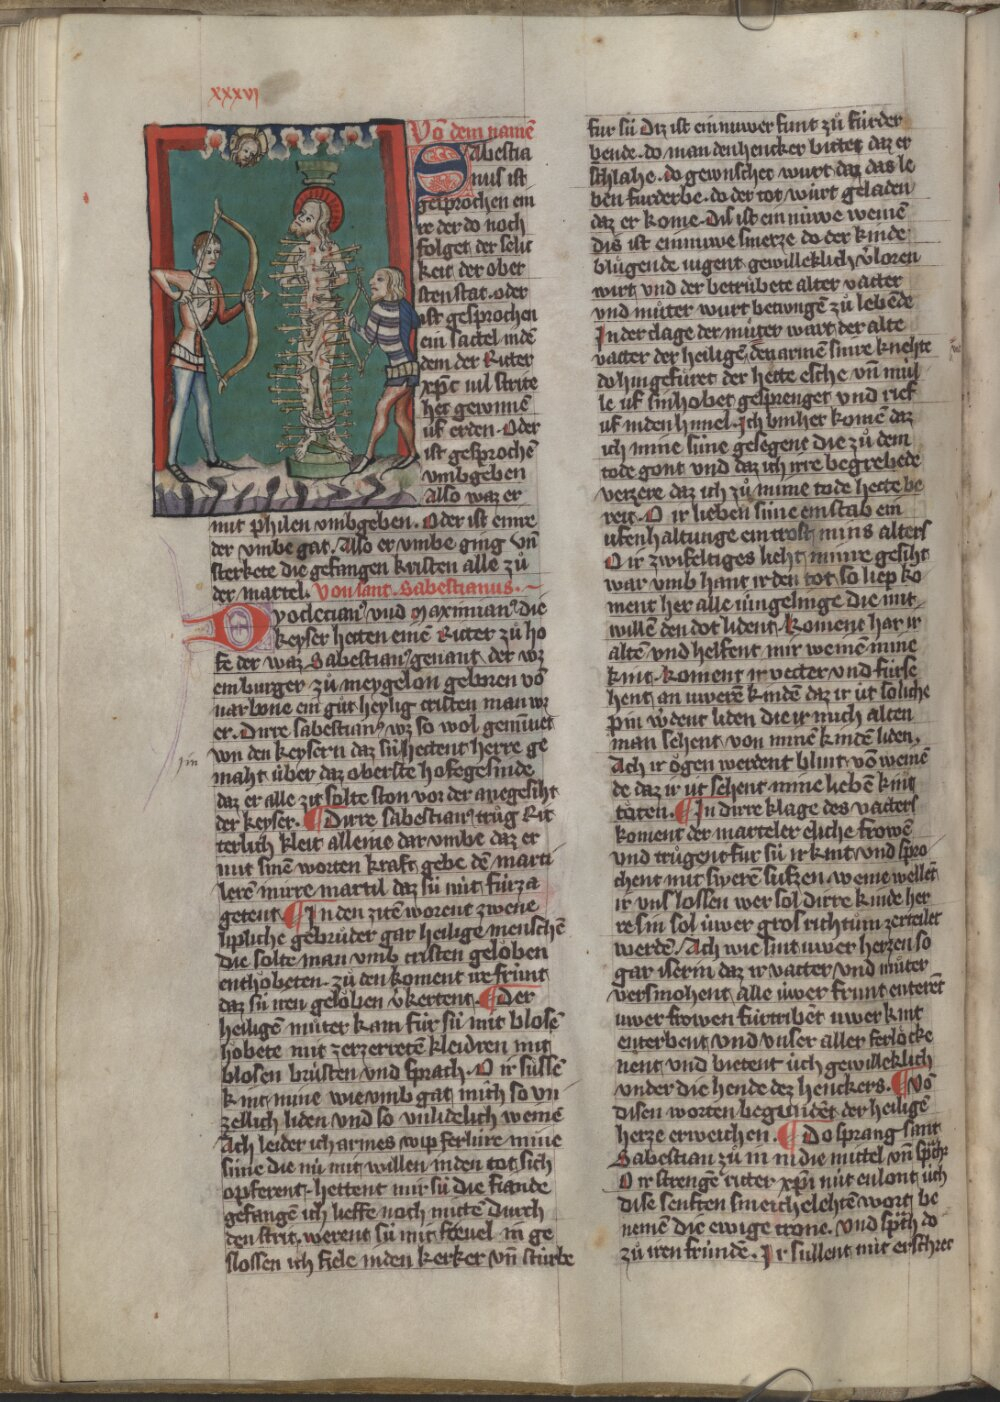 xxxvi
Vō dem namē
Sabestia
nus ist
gesprochen ein
re der do noch
folget der selic
keit der ober
sten stat. oder
ist gesprochen
ein sattel in dē
dem der Ritter
xp̄c vil strite
het gewinnē
uf erden. Oder
ist gesprochē
vmbgeben
Also waz er
mit philen vmbgeben. Oder ist einre
der vmbe gat. Also er vmbe ging vn̄
sterkete die gefangen kristen alle zů
der martel. Von sant. Sabestianus.
Dyocletian9 vnd Maximian9 die
keyser hetten einē Ritter zů ho
fe der waz Sabestian9 genant der wz
ein burger zů meygelon geboren vō
narbone ein gůt heylig cristen man wz
er. Dirre sabestian9 wz so wol gemīnet
von den keysern daz sü hettent herre ge
maht über daz oberste hofegesinde
daz er alle zit solte ston vor der angesiht
der keyser. Dirre sabestian9 trůg Rit
terlich kleit alleine dar vmbe daz er
mit sinē worten kraft gebe dē marti
lerē in irre martil daz sü nüt für za
getent. In den zitē worent zwene
lipliche gebrůder gar heilige menschē
die solte man vmb cristen gelöben
enthöbeten. zů den koment ire frünt
daz sü iren gelöben v̄kertent. Der
heiligē můter kam für sü mit blosē
höbete mit zerzerretē kleidren mit
blosen brüsten vnd sprach. O ir süssē
kint mine wie vmb gat mich so vn
zellich liden vnd so vnlidelich weinē
Ach leider ich armes wip ferlüre mine
süne die nü mit willen in den tot sich
opferent. hettent mir sü die fiande
gefangē ich lieffe noch mittē durch
den strit. werent sü mit freuel in ge
slossen ich fiele in den kerker vn̄ stürbe
für sü Diz ist ein nuwer funt zů fürder
bende. do man den hencker bittet daz er
schlahe. do gewnschet wurt daz das le
ben fürderbe. do der tot wurt geladen
daz er kome. Dis ist ein nüwe weinē
Dis ist ein nuwe smerze do der kinde
blůgende iugent gewilleklich v̄loren
wirt vnd der betrůbete alter vatter
vnd můter wurt betwngē zů lebēde
In der clage der můter wart der alte
vatter der heiligē den armē sinre knehte
do hin gefüret der hette esche vn̄ mül
le uf sin hobet gesprenget vnd rief
uf in den himel. Ich bin her komē daz
ich mine süne gesegent die zů dem
tode gont vnd daz ich irre begrebede
verzere daz ich zů mime tode hette be
reit. O ir lieben süne ein stab ein
ufenthaltunge ein trost mins alters
O ir zwifeltiges lieht minre gesiht
war vmb hant ir den tot so liep ko
ment her alle iüngelinge die mit
willē den dot lident. koment har ir
altē vnd helfent mir weinē mine
kint. koment ir vetter vnd fürse
hent an uwerē kindē daz ir üt soliche
pin w̄dent liden die ir mich alten
man sehent von minē kindē liden.
Ach ir ögen werdent blint von weinē
de daz ir üt sehent mine liebē kint
töten. In dirre klage des vatters
koment der marteler eliche frowē
vnd trůgent für sü ir kint vnd spro
chent mit swerē süfzen. weme wellēt
ir vns lossen wer sol dirre kinde her
re sin sol üwer gros richtům zerteilet
werdē. Ach wie sint uwer herzen so
gar iserin daz ir vatter vnd můter
versmohent alle üwer frunt enterēt
uwer frowen fürtribēt uwer kint
enterbent vnd vnser aller ferlöcke
nent vnd bietent üch gewilleklich
vnder die hende dez henckers. Vō
disen worten begundēt der heiligē
herze erweichen. Do sprang sant
Sabestian zů in in die mittel vn̄ sp̄ch
O ir strengē ritter xp̄i nüt enlont üch
dise senften smeichelehtē wort be
nemē die ewige trone. vnd sp̄ch do
zů iren fründē. Ir süllent nüt erschrec